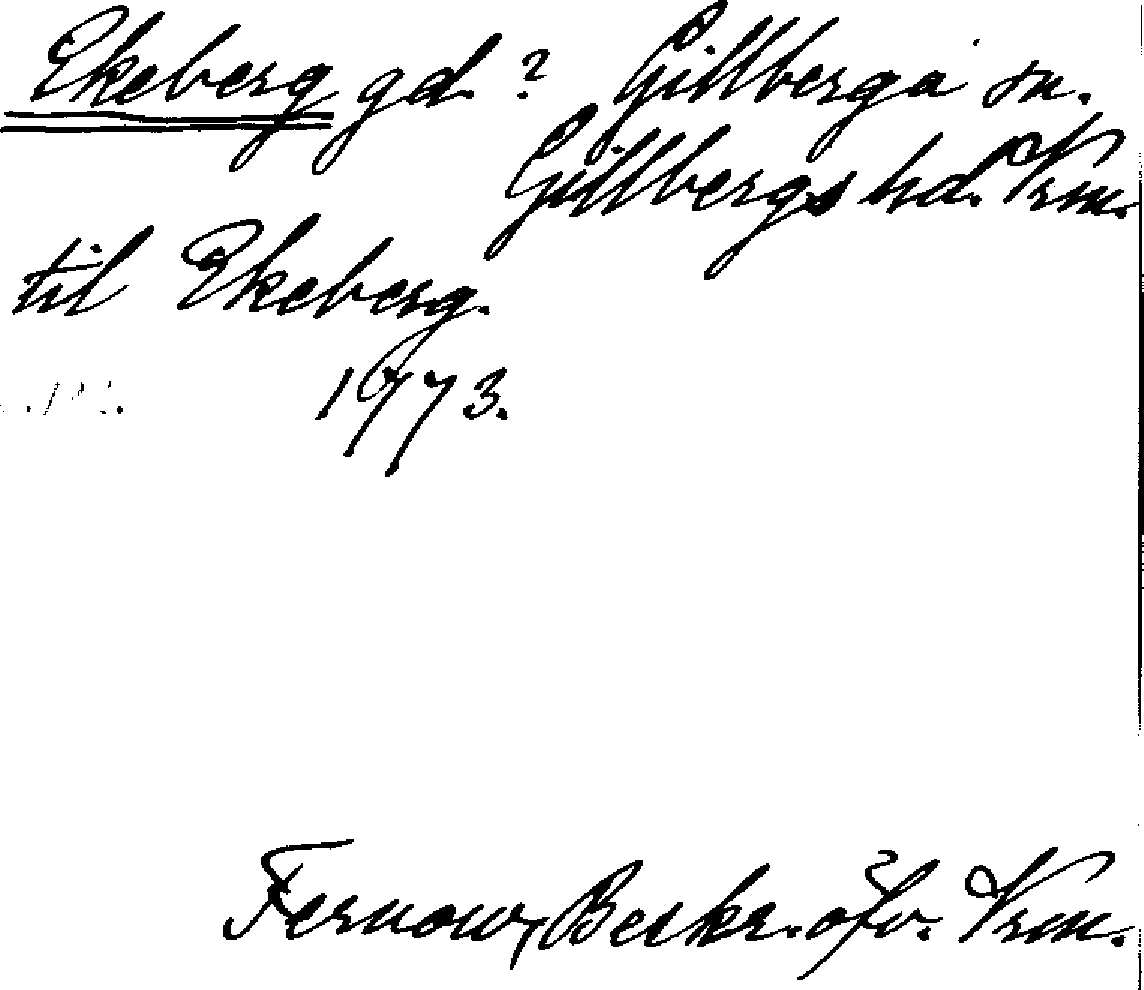 Ekeberg gd. ? Gillberga sn.
Gillbergs hd. Vrm.
til Ekeberg.
1773.
Fernow, Beskr. öfv. Vrm.